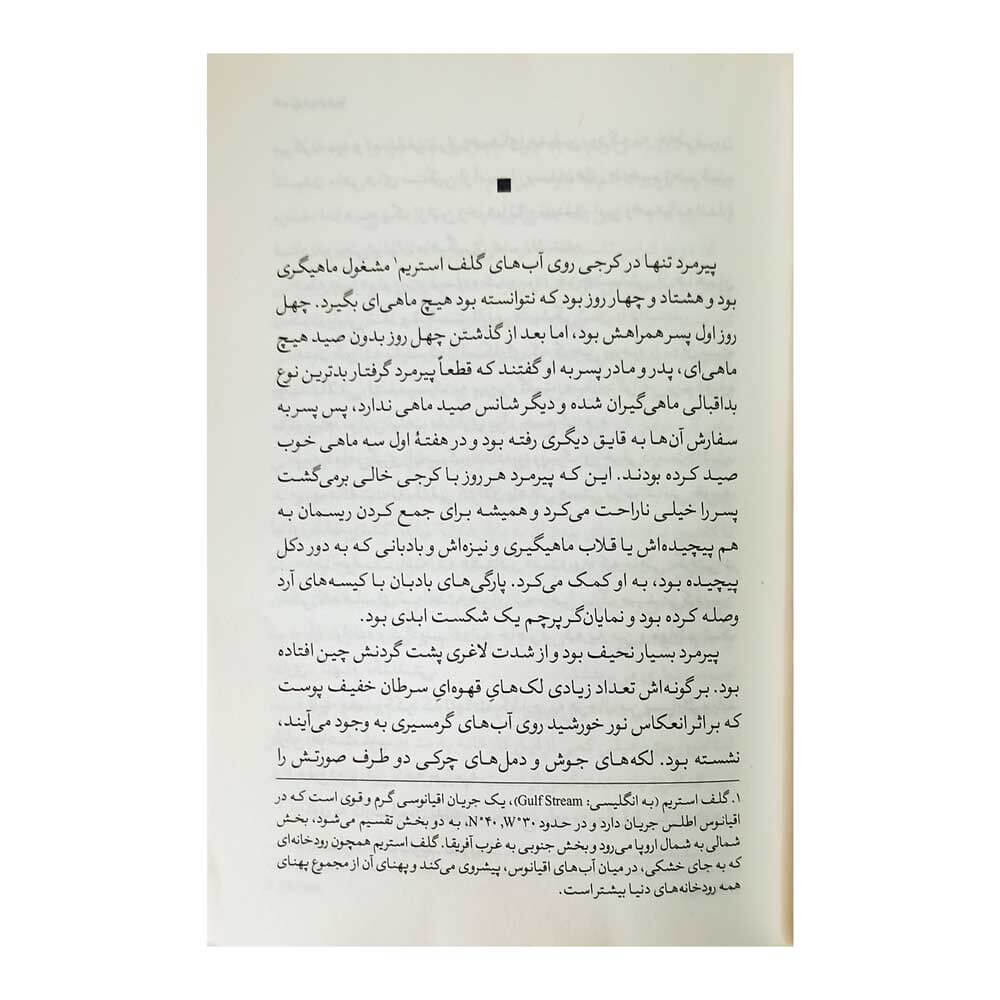 پیرمرد تنها در کرجی روی آب‌های گلف استریم۱ مشغول ماهیگری
بود و هشتاد و چهار روز بود که نتوانسته بود هیچ ماهی‌ای بگیرد. چهل
روز اول پسر همراهش بود، اما بعد از گذشتن چهل روز بدون صید هیچ
ماهی‌ای، پدر و مادر پسر به او گفتند که قطعاً پیرمرد گرفتار بدترین نوع
بداقبالی ماهی‌گیران شده و دیگر شانس صید ماهی ندارد، پس پسر به
سفارش آن‌ها به قایق دیگری رفته بود و در هفتهٔ اول سه ماهی خوب
صید کرده بودند. این که پیرمرد هر روز با کرجی خالی برمی‌گشت
پسر را خیلی ناراحت می‌کرد و همیشه برای جمع کردن ریسمان به
هم پیچیده‌اش یا قلاب ماهیگیری و نیزه‌اش و بادبانی که به دور دکل
پیچیده بود، به او کمک می‌کرد. پارگی‌های بادبان با کیسه‌های آرد
وصله کرده بود و نمایان‌گر پرچم یک شکست ابدی بود.
پیرمرد بسیار نحیف بود و از شدت لاغری پشت گردنش چین افتاده
بود. بر گونه‌اش تعداد زیادی لک‌های قهوه‌ایِ سرطان خفیف پوست
که بر اثر انعکاس نور خورشید روی آب‌های گرمسیری به وجود می‌آیند،
نشسته بود. لکه‌های جوش و دمل‌های چرکی دو طرف صورتش را
۱. گلف استریم (به انگلیسی: Gulf Stream)، یک جریان اقیانوسی گرم و قوی است که در
اقیانوس اطلس جریان دارد و در حدود N°۴۰ ,W°۳۰، به دو بخش تقسیم می‌شود، بخش
شمالی به شمال اروپا می‌رود و بخش جنوبی به غرب آفریقا. گلف استریم همچون رودخانه‌ای
که به جای خشکی، در میان آب‌های اقیانوس، پیشروی می‌کند و پهنای آن از مجموع پهنای
همه رودخانه‌های دنیا بیشتر است.